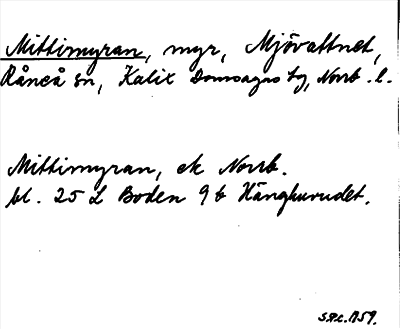 Mittimyran, myr, Mjövattnet,
Råneå sn, Kalix Domsagas tg, Norrb. l.
Mittimyran, ek Norrb.
bl. 25 L Boden 9 b Hänghuvudet.
1959.